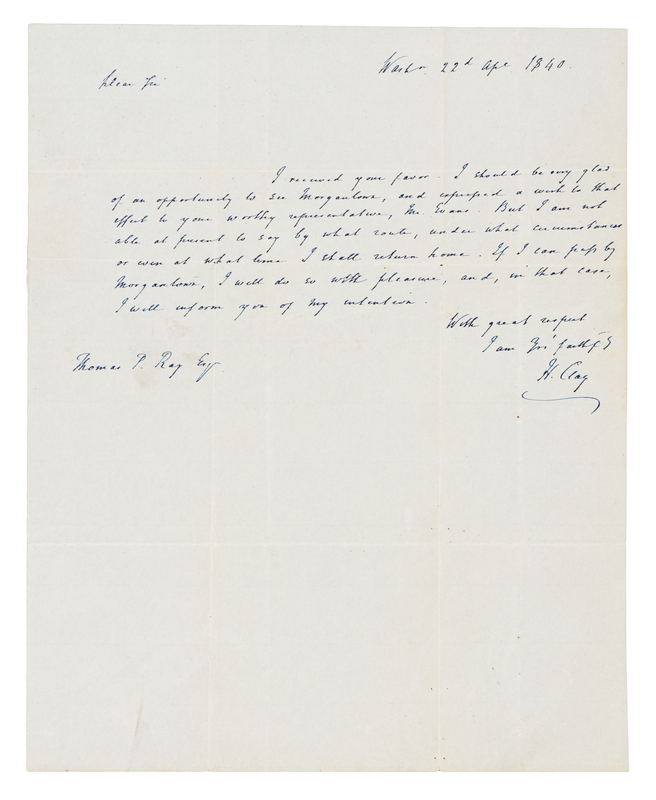 Washn. 22d Apl 1840.
Dear Sir
I received your favor. I should be very glad
of an opportunity to see Morgantown, and expressed a wish to that
effect to your worthy representative, Mr. Evans. But I am not
able at present to say by what route, under what circumstances
or even at what time I shall return home. If I can pass by
Morgantown, I will do so with pleasure, and, in that case,
I will inform you of my intention.
With great respect
I am Yrs faithfy
H. Clay
Thomas P. Ray Esqr